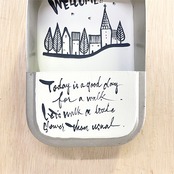 WELCOME
Today is a good day
for a walk.
Let's walk a little
slower than usual